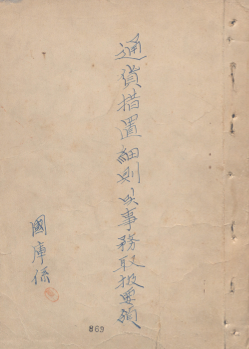 通貨措置細則以事務取扱要領
國庫係
869